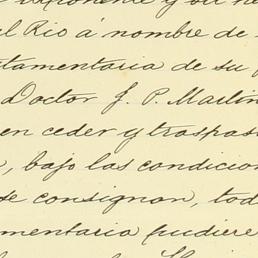 exponente y su he
el Rio á nombre de
tamentaria de su p
Doctor J. P. Martin
en ceder y traspas
, bajo las condicion
se consignan, tod
mentaria pudiere